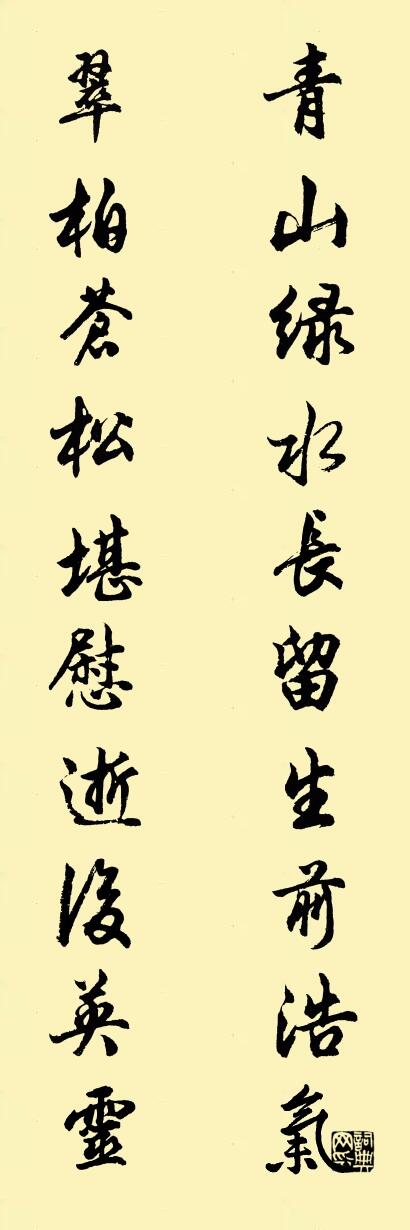 青山绿水長留生前浩氣
翠柏蒼松堪慰逝後英靈
詞典網